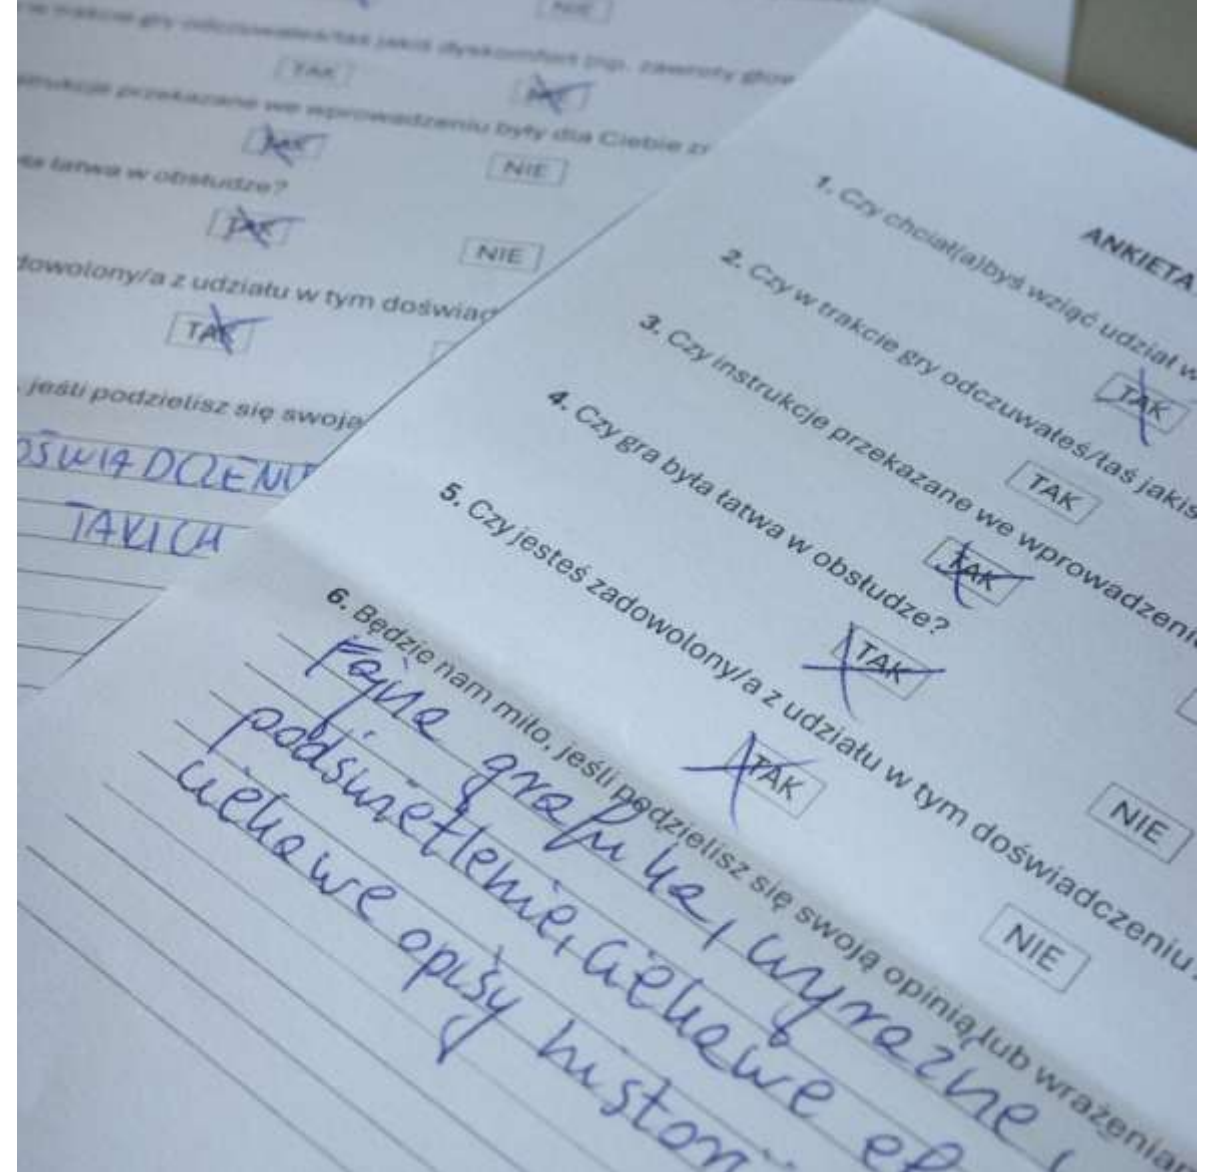 NIE
w trakcie gry odczuwałeś/łaś jakiś dyskomfort (np. zawroty głow
TAK
NIE
instrukcje przekazane we wprowadzeniu były dla Ciebie
TAK
NIE
łatwa w obsłudze?
TAK
NIE
dowolony/a z udziału w tym doświad
TAK
jeśli podzielisz się swoją
OŚWIADCZENIE
TAKICH
ANKIETA
1. Czy chciał(a)byś wziąć udział w
TAK
2. Czy w trakcie gry odczuwałeś/łaś jakiś
TAK
3. Czy instrukcje przekazane we wprowadzeni
TAK
4. Czy gra była łatwa w obsłudze?
TAK
NIE
5. Czy jesteś zadowolony/a z udziału w tym doświadczeniu
TAK
NIE
6. Będzie nam miło, jeśli podzielisz się swoją opinią lub wrażeniam
Fajna grafika, wyraźne
podświetlenie, ciekawe ef
ciekawe opisy histori